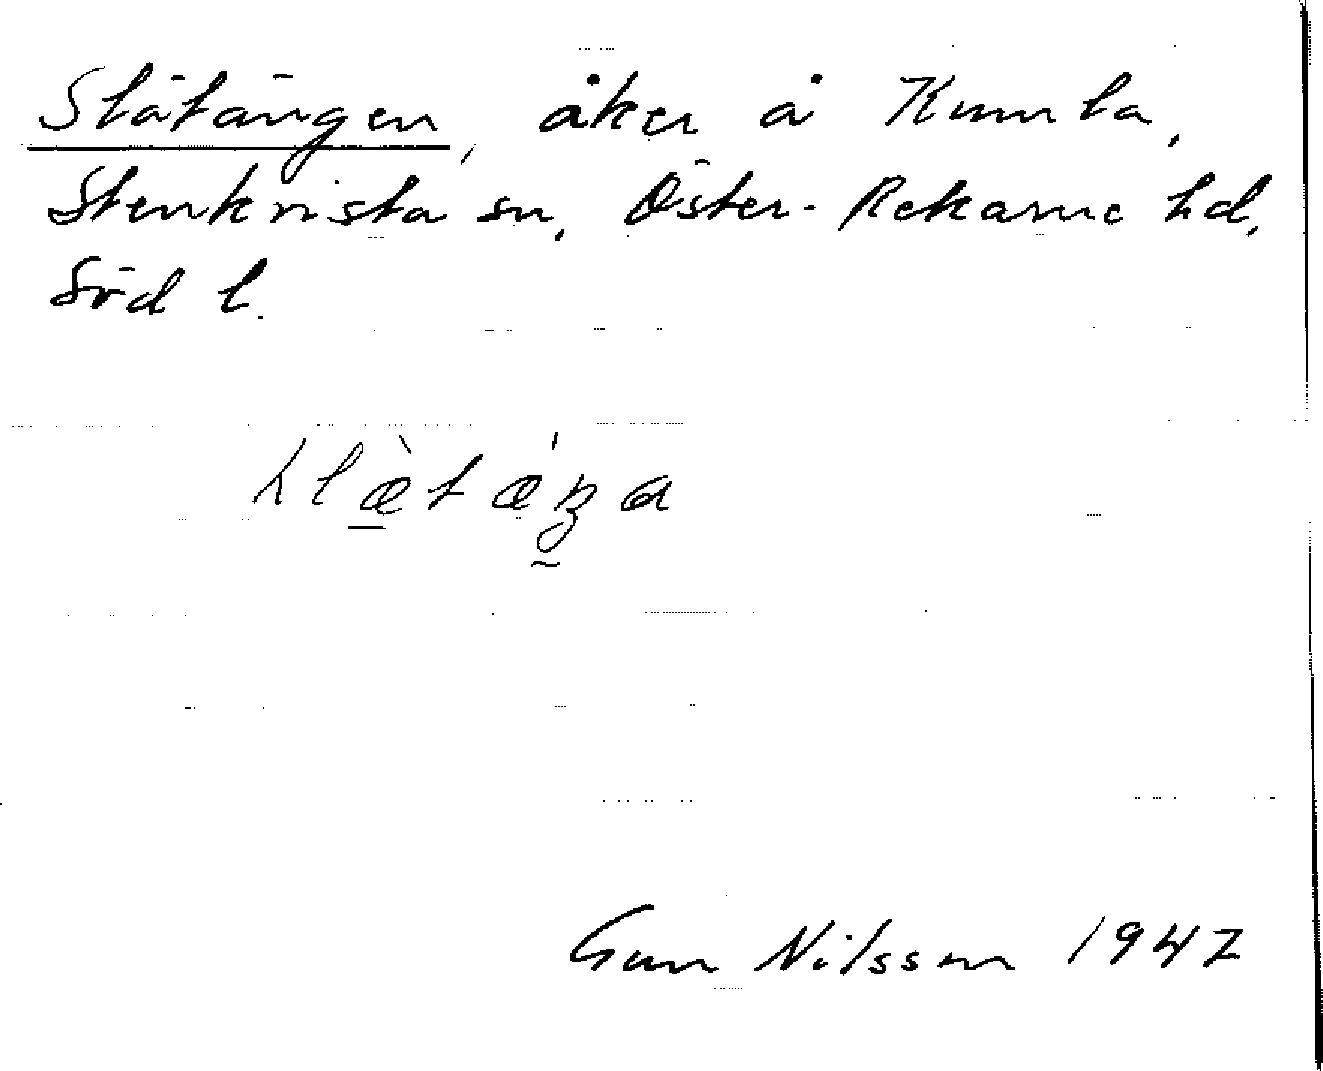 Slätängen, åker å Kumla,
Stenkvista sn, Öster-Rekarne hd,
Söd l.
Gun Nilsson 1947